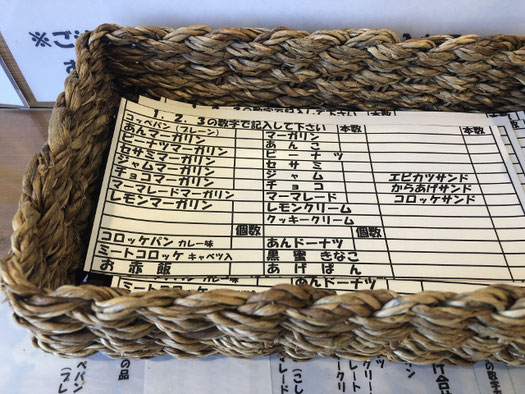 ※ご
1. 2. 3の数字で記入して下さい 本数 本数
コッペパン(プレーン) マーガリン
あんマーガリン あんこ
ピーナツマーガリン ピーナツ
セサミマーガリン セサミ
ジャムマーガリン ジャム エビカツサンド
チョコマーガリン チョコ からあげサンド
マーマレードマーガリン マーマレード コロッケサンド
レモンマーガリン レモンクリーム
クッキークリーム
個数 個数
コロッケパン カレー味 あんドーナツ
ミートコロッケ キャベツ入 黒蜜きなこ
お赤飯 あげぱん
ミートコロッケ あんドーナツ
の品